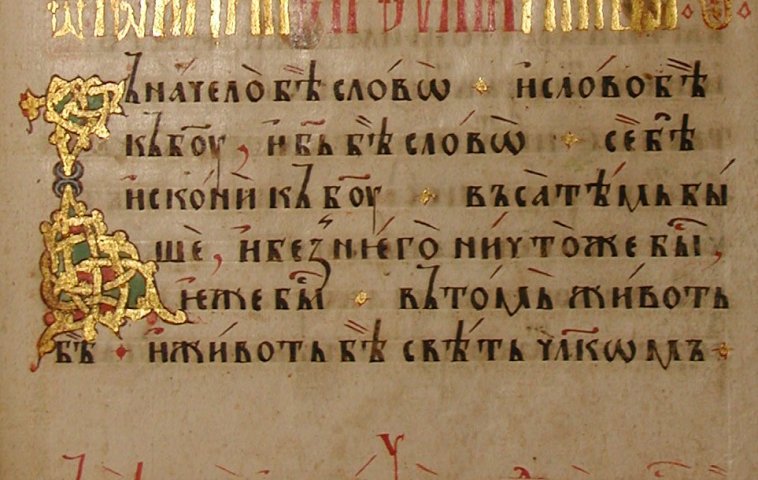 Въначелѡ̀ бѣ̀ сло́вѡ и̓сло́во бѣ̀
къ бо҃у, и̓б҃ь бѣ̀ сло́вѡ се бѣ̀
и̓скони̇̀ къ бо҃у въсатѣ́мь бы́
шѐ, и̓без̾ ніе́го̀ ничто̀же бы̑,
и̓еже бы̑ въто́мь жи́воть
бѣ̀ и̓жи́воть бѣ̀ свѣ́ть чл҃кѡмъ